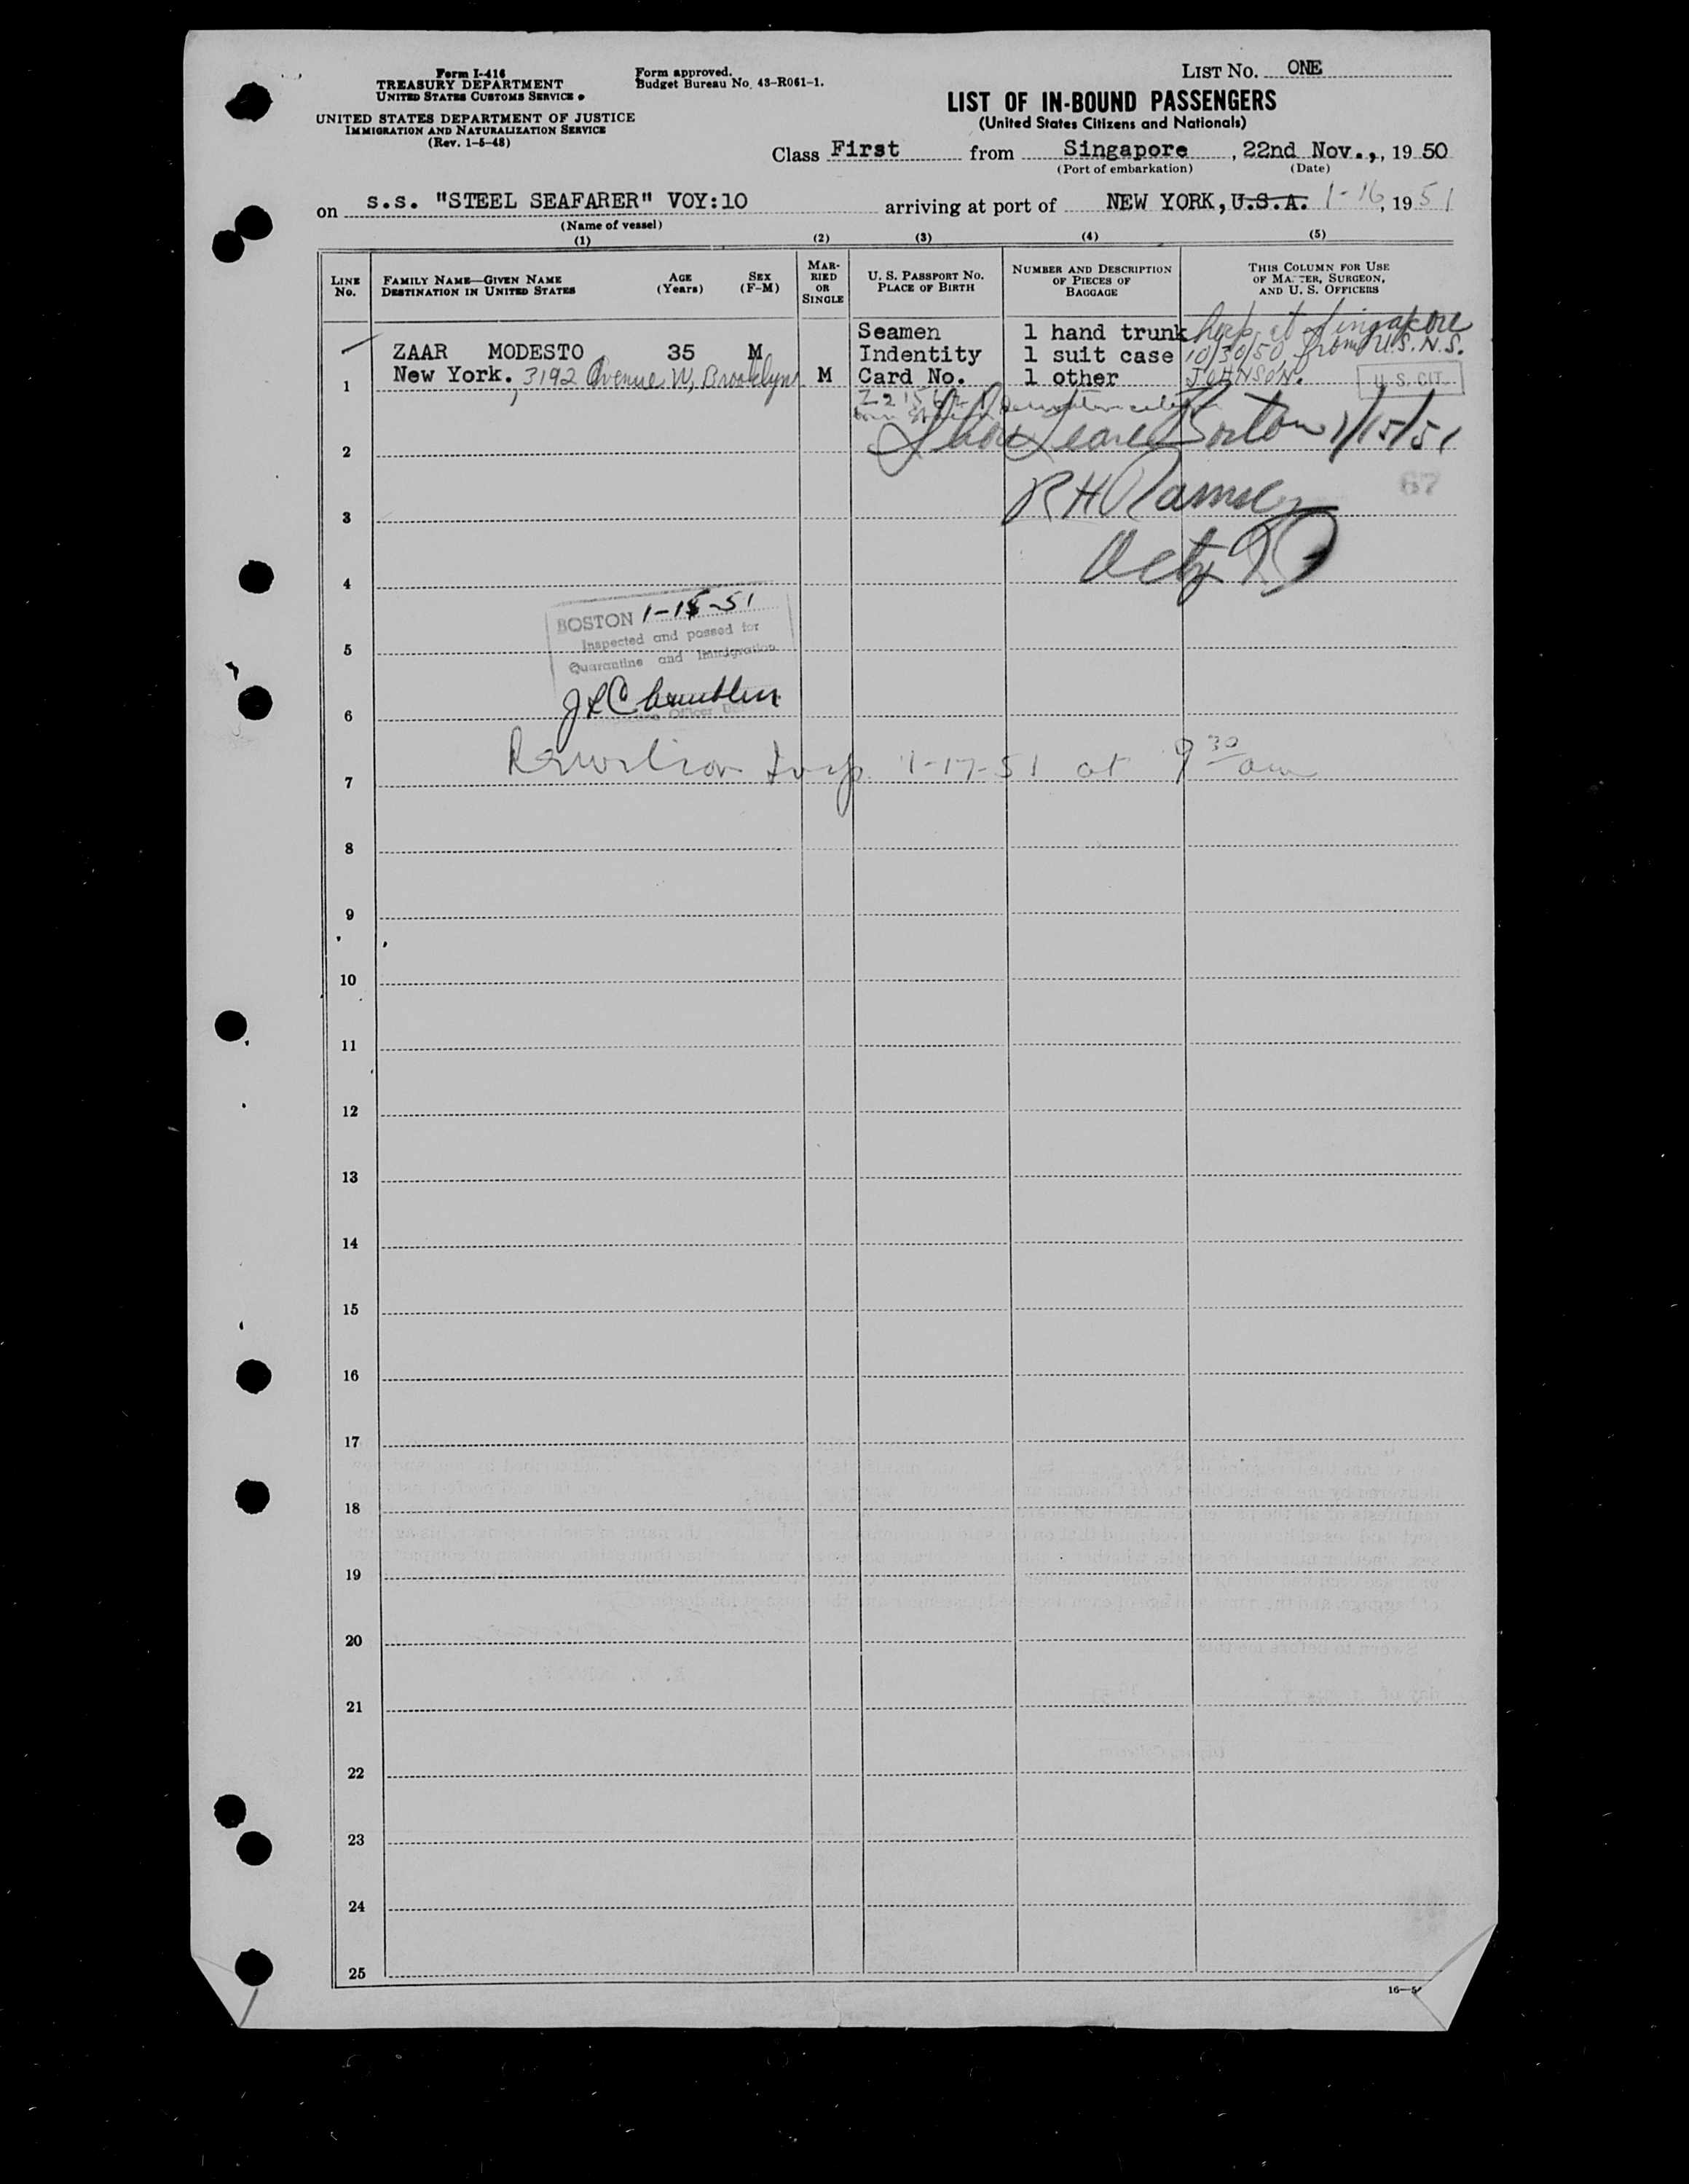 Form I-416
TREASURY DEPARTMENT
UNITED STATES CUSTOMS SERVICE
UNITED STATES DEPARTMENT OF JUSTICE
IMMIGRATION AND NATURALIZATION SERVICE
(Rev. 1-5-48)
Form approved.
Budget Bureau No. 43-R061-1.
LIST No. ONE
LIST OF IN-BOUND PASSENGERS
(United States Citizens and Nationals)
Class First from Singapore, 22nd Nov., , 19 50
(Port of embarkation) (Date)
on s.s. "STEEL SEAFARER" VOY:10 arriving at port of NEW YORK, U.S.A. 1-16, 19 51
(Name of vessel)
(1) (2) (3) (4) (5)
LINE No.
FAMILY NAME—GIVEN NAME
DESTINATION IN UNITED STATES
AGE (Years)
SEX (F-M)
MARRIED OR SINGLE
U. S. PASSPORT NO.
PLACE OF BIRTH
NUMBER AND DESCRIPTION OF PIECES OF BAGGAGE
THIS COLUMN FOR USE OF MASTER, SURGEON, AND U. S. OFFICERS
Seamen 1 hand trunk at Singapore
ZAAR MODESTO 35 M Indentity 1 suit case 10/30/50 from U.S.N.S.
1 New York. 3192 Avenue W, Brooklyn M Card No. 1 other JOHNSON. U.S. CIT.
2 Shore Leave Boston 1/15/51
3 R H Ramsey 67
4
BOSTON 1-15-51
Inspected and passed for
5
Quarantine and Immigration
6
7 1-17-51 at 9 30 am
8
9
10
11
12
13
14
15
16
17
18
19
20
21
22
23
24
25